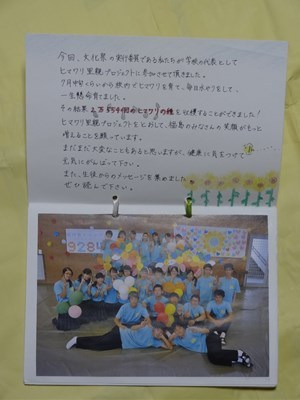 今回、文化祭の実行委員である私たちが学校の代表として
ヒマワリ里親プロジェクトに参加させて頂きました。
7月中旬くらいから校内でヒマワリを育て、毎日水やりをして、
一生懸命育てました。
その結果2万55千個のヒマワリの種を収穫することができました!
ヒマワリ里親プロジェクトをとおして、福島のみなさんの笑顔がもっと
増えることを願っています。
まだまだ大変なこともあると思いますが、健康に気をつけて
元気にがんばって下さい。
また、生徒からのメッセージを集めました
ぜひ読んで下さい。
928